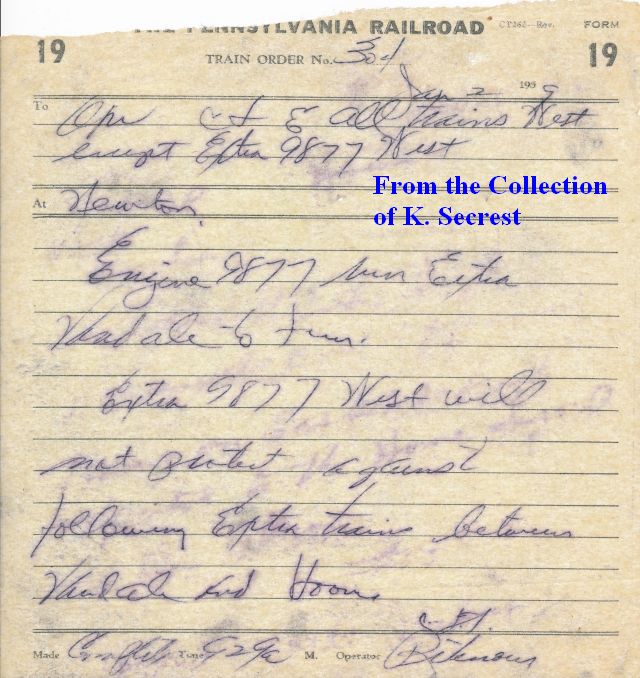 THE PENNSYLVANIA RAILROAD CT262—Rev. FORM
19 19
TRAIN ORDER No. 304
Jan 2 1959
To Opr C&E All trains West
except Extra 9877 West
From the Collection
of K. Secrest
At Newton
Engine 9877 run Extra
Vandale to
Extra 9877 West will
not protect against
following Extra trains between
Vandale and
Made Complete Time 929a M. Operator